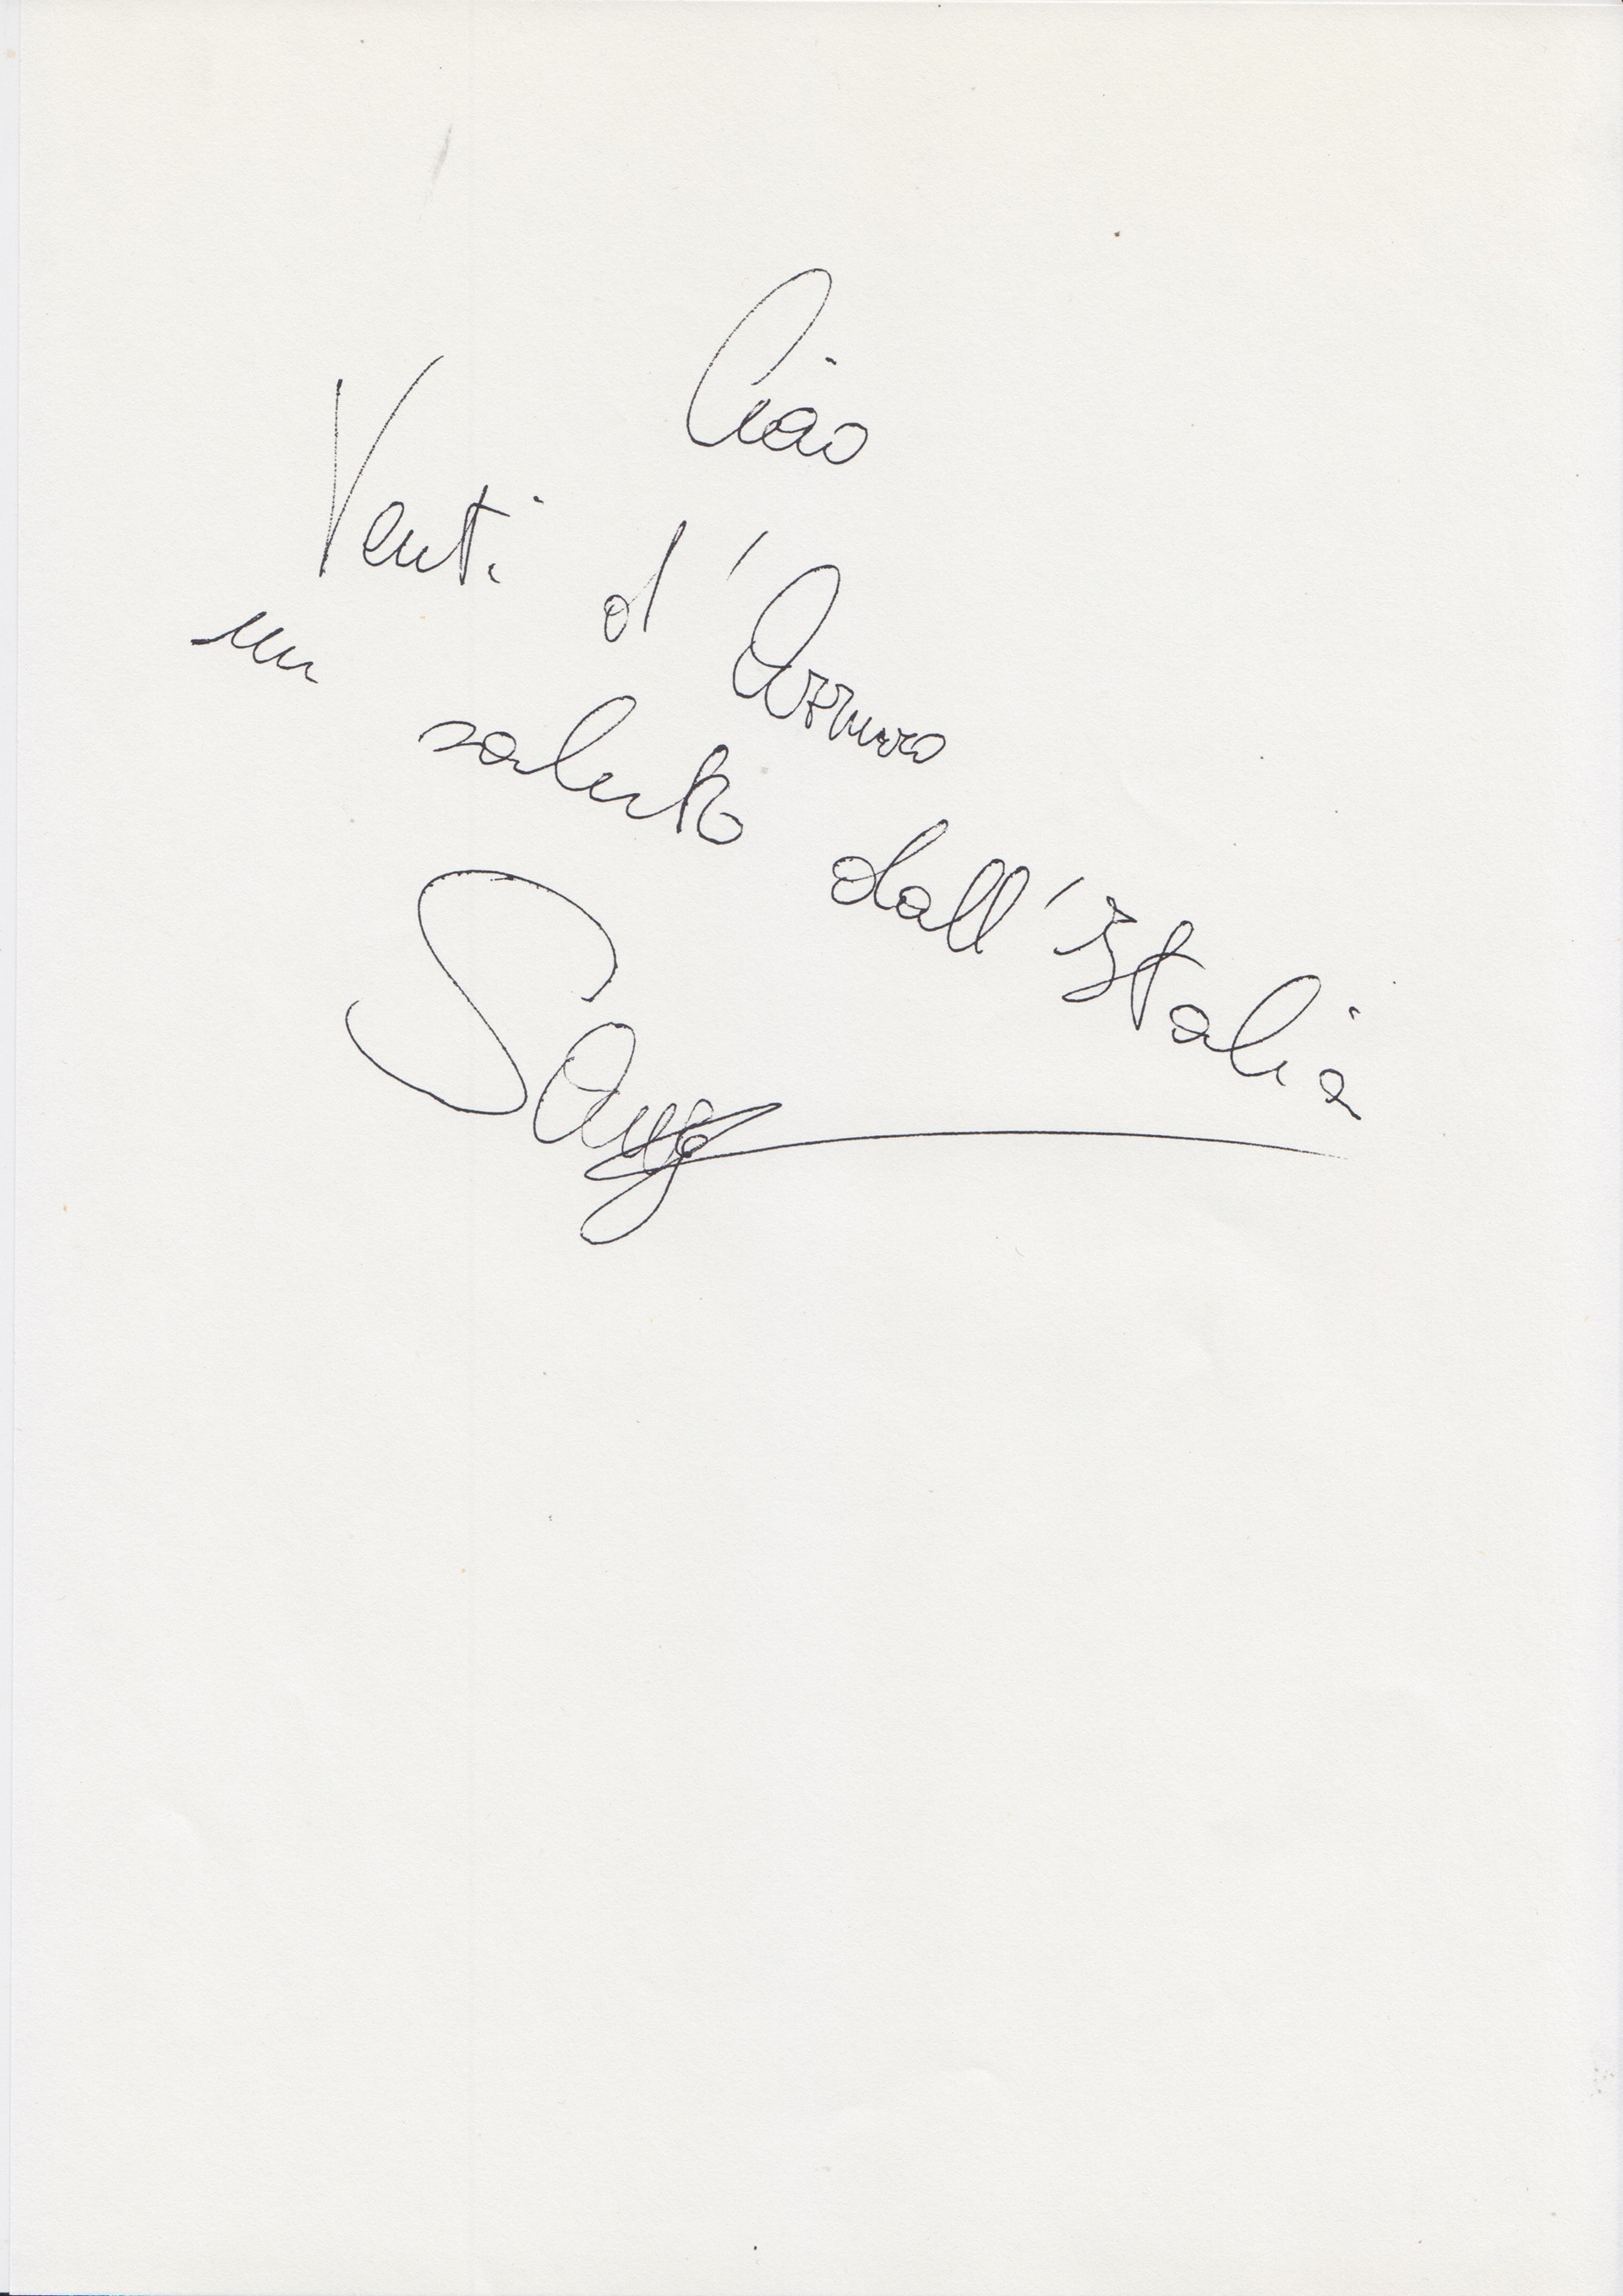 Ciao
Venti d'Azzurro
un saluto dall'Italia